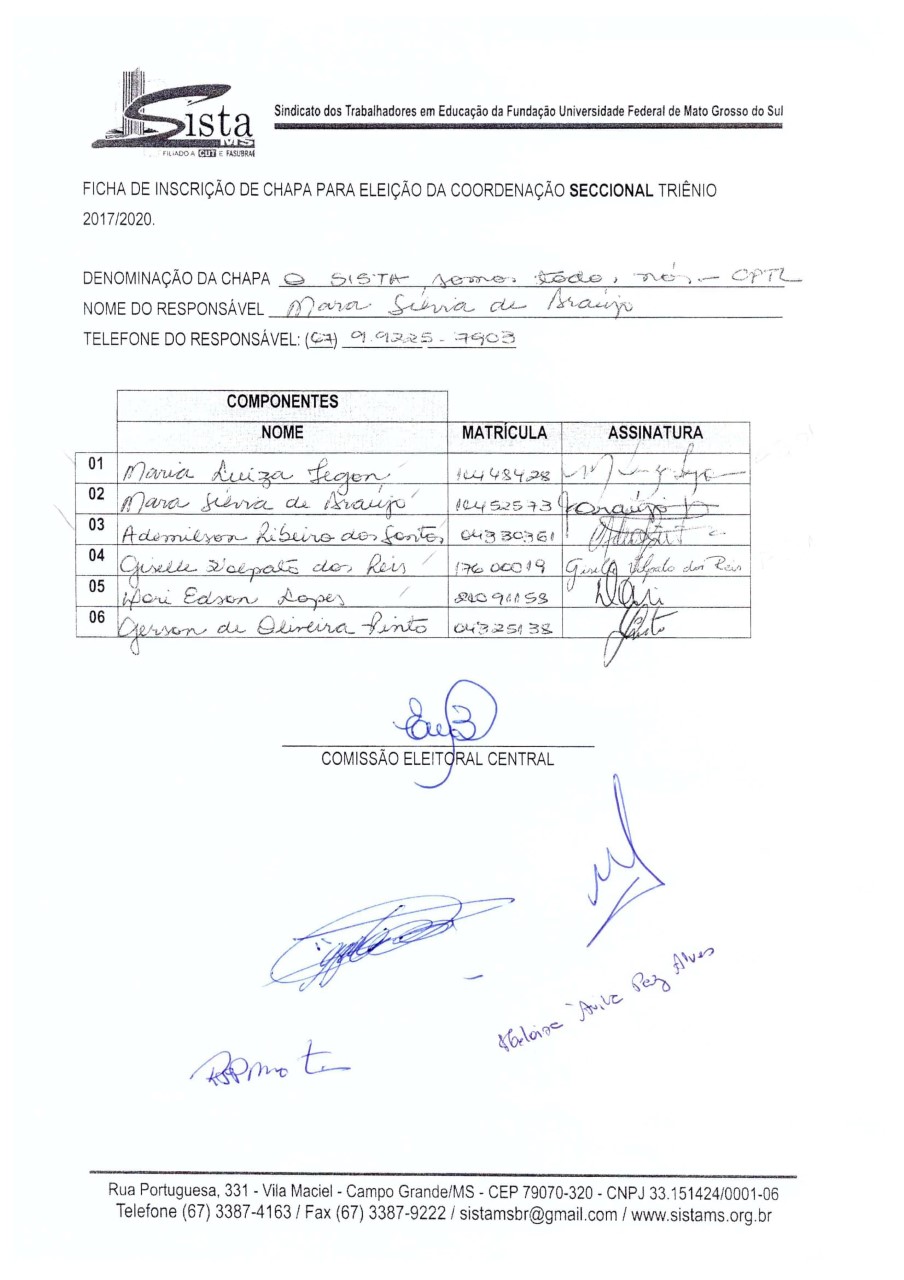 Sista
MS
FILIADO A CUT E FASUBRA
Sindicato dos Trabalhadores em Educação da Fundação Universidade Federal de Mato Grosso do Sul
FICHA DE INSCRIÇÃO DE CHAPA PARA ELEIÇÃO DA COORDENAÇÃO SECCIONAL TRIÊNIO
2017/2020.
DENOMINAÇÃO DA CHAPA O SISTA somos todos nós - CPTL
NOME DO RESPONSÁVEL Mara Silvia de Araújo
TELEFONE DO RESPONSÁVEL: (67) 9.9225-7903
COMPONENTES
NOME MATRÍCULA ASSINATURA
01 Maria Luiza Segon 10448428
02 Mara Silvia de Araújo 10452573 Araújo
03 Ademilson Ribeiro dos Santos 04330361
04 Giselle Valpato dos Reis 17600019 Giselle Valpato dos Reis
05 Dori Edson Lopes Dori
06 Gerson de Oliveira Pinto 04325138
COMISSÃO ELEITORAL CENTRAL
Heloisa Avila Paz Alves
RSPMota
Rua Portuguesa, 331 - Vila Maciel - Campo Grande/MS - CEP 79070-320 - CNPJ 33.151424/0001-06
Telefone (67) 3387-4163 / Fax (67) 3387-9222 / sistamsbr@gmail.com / www.sistams.org.br